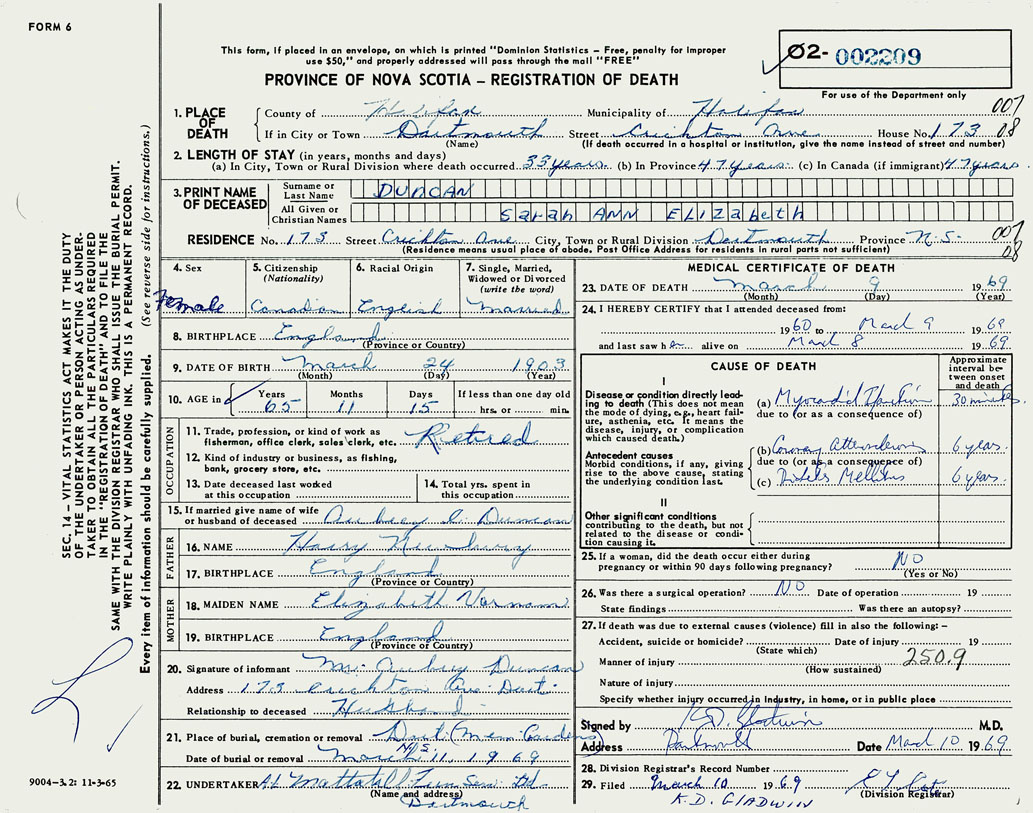 FORM 6
This form, if placed in an envelope, on which is printed "Dominion Statistics – Free, penalty for improper
use $50," and properly addressed will pass through the mail "FREE"
PROVINCE OF NOVA SCOTIA – REGISTRATION OF DEATH
02- 002209
For use of the Department only
1. PLACE OF DEATH
County of Halifax Municipality of Halifax 007
If in City or Town Dartmouth Street Crichton Ave House No. 173 08
(Name) (If death occurred in a hospital or institution, give the name instead of street and number)
2. LENGTH OF STAY (in years, months and days)
(a) In City, Town or Rural Division where death occurred 33 years (b) In Province 47 years (c) In Canada (if immigrant) 47 years
3. PRINT NAME OF DECEASED
Surname or Last Name DUNCAN
All Given or Christian Names Sarah ANN ELIZabeth
RESIDENCE No. 173 Street Crichton Ave City, Town or Rural Division Dartmouth Province N.S. 007
(Residence means usual place of abode. Post Office Address for residents in rural parts not sufficient) 08
4. Sex
Female
5. Citizenship (Nationality)
Canadian
6. Racial Origin
English
7. Single, Married, Widowed or Divorced (write the word)
Married
8. BIRTHPLACE England
(Province or Country)
9. DATE OF BIRTH March 24 1903
(Month) (Day) (Year)
10. AGE in Years Months Days If less than one day old
65 11 15 hrs. or min.
OCCUPATION
11. Trade, profession, or kind of work as
fisherman, office clerk, sales clerk, etc. Retired
12. Kind of industry or business, as fishing,
bank, grocery store, etc.
13. Date deceased last worked
at this occupation
14. Total yrs. spent in
this occupation
15. If married give name of wife
or husband of deceased Aubrey C. Duncan
FATHER
16. NAME Harry
17. BIRTHPLACE England
(Province or Country)
MOTHER
18. MAIDEN NAME Elizabeth
19. BIRTHPLACE England
(Province or Country)
20. Signature of informant Mr. Aubrey Duncan
Address 173 Crichton Ave Dart
Relationship to deceased Husband
21. Place of burial, cremation or removal Dart. Mem. Gardens
N.S.
Date of burial or removal March 11, 1969
22. UNDERTAKER A.L. Mattatall Fun. Serv. Ltd.
(Name and address)
Dartmouth
MEDICAL CERTIFICATE OF DEATH
23. DATE OF DEATH March 9 1969
(Month) (Day) (Year)
24. I HEREBY CERTIFY that I attended deceased from:
1960 to March 9 1969
and last saw her alive on March 8 1969
CAUSE OF DEATH
Approximate interval between onset and death
I
Disease or condition directly leading to death (This does not mean the mode of dying, e.g., heart failure, asthenia, etc. It means the disease, injury, or complication which caused death.)
(a) Myocardial Infarction 30 minutes
due to (or as a consequence of)
Antecedent causes
Morbid conditions, if any, giving rise to the above cause, stating the underlying condition last.
(b) Coronary 6 years
due to (or as a consequence of)
(c) Diabetes Mellitus 6 years
II
Other significant conditions
contributing to the death, but not
related to the disease or condition causing it.
25. If a woman, did the death occur either during
pregnancy or within 90 days following pregnancy? NO
(Yes or No)
26. Was there a surgical operation? NO Date of operation 19
State findings Was there an autopsy?
27. If death was due to external causes (violence) fill in also the following: –
Accident, suicide or homicide? Date of injury 19
(State which)
Manner of injury 250.9
(How sustained)
Nature of injury
Specify whether injury occurred in industry, in home, or in public place
Signed by K.D. Gladwin M.D.
Address Dartmouth Date March 10 1969
28. Division Registrar's Record Number
29. Filed March 10 1969
(Division Registrar)
K.D. GLADWIN
SEC. 14 – VITAL STATISTICS ACT MAKES IT THE DUTY
OF THE UNDERTAKER OR PERSON ACTING AS UNDER-
TAKER TO OBTAIN ALL THE PARTICULARS REQUIRED
IN THE "REGISTRATION OF DEATH" AND TO FILE THE
SAME WITH THE DIVISION REGISTRAR WHO SHALL ISSUE THE BURIAL PERMIT.
WRITE PLAINLY WITH UNFADING INK. THIS IS A PERMANENT RECORD.
Every item of information should be carefully supplied. (See reverse side for instructions.)
9004-3.2: 11-3-65